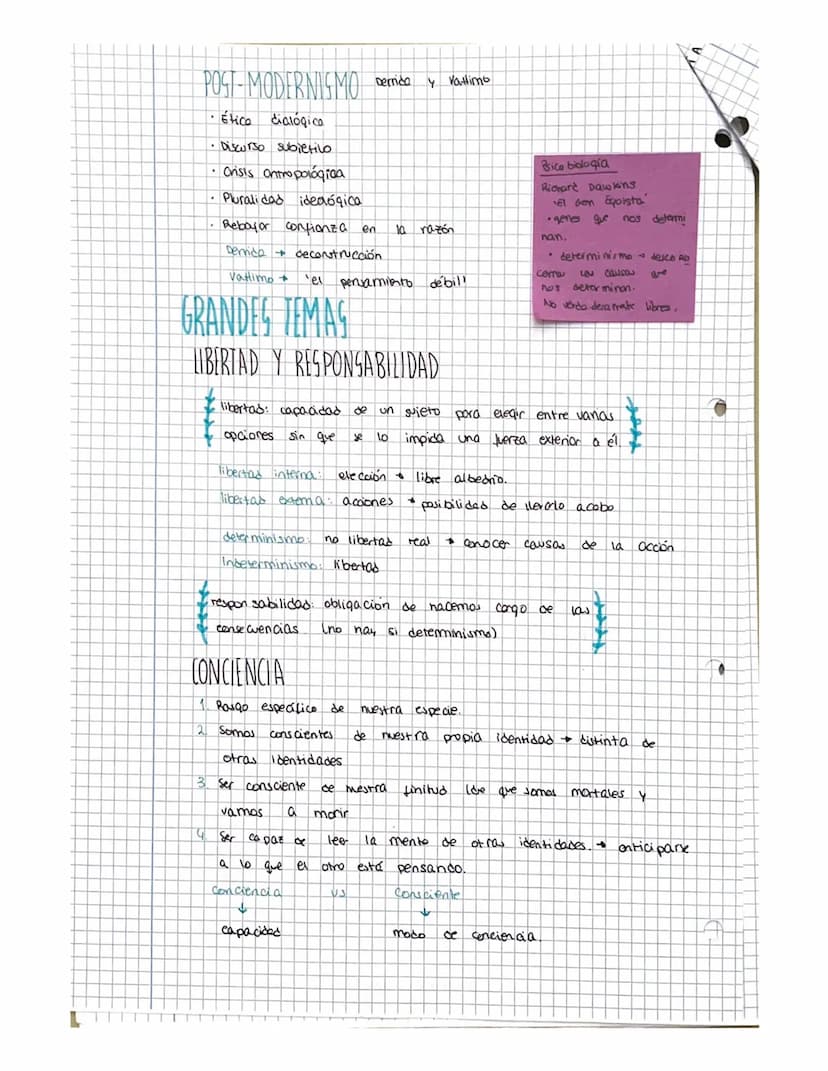 POST-MODERNISMO Derrida y Vattimo
· Ética dialógica
· Discurso subjetivo
· Crisis antropológica
· Pluralidad ideológica
· Rebajar confianza en la razón
Derrida → deconstrucción
Vattimo → 'el pensamiento débil'
Psicobiología
Richard Dawkins
'El Gen Egoista'
· genes que nos determi
nan.
· determinismo → desco no
cemos las causas que
nos determinan.
No verdaderamente libres.
GRANDES TEMAS
LIBERTAD Y RESPONSABILIDAD
libertad: capacidad de un sujeto para elegir entre varias
opciones sin que se lo impida una fuerza exterior a él.
libertad interna: elección → libre albedrío.
libertad externa: acciones → posibilidad de llevarlo acabo
determinismo: no libertad real → conocer causas de la acción
Indeterminismo: libertad
responsabilidad: obligación de hacernos cargo de las
consecuencias (no hay si determinismo)
CONCIENCIA
1. Rasgo específico de nuestra especie.
2. Somos conscientes de nuestra propia identidad → distinta de
otras identidades
3. Ser consciente de nuestra finitud (de que somos mortales y
vamos a morir
4. Ser capaz de leer la mente de otras identidades. → anticiparse
a lo que el otro está pensando.
Conciencia vs Consciente
↓ ↓
capacidad modo de conciencia.